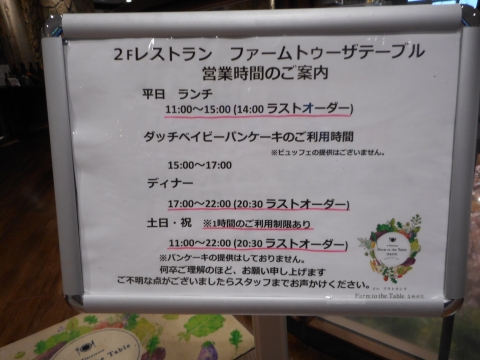 2Fレストラン ファームトゥーザテーブル
営業時間のご案内
平日 ランチ
11:00～15:00 (14:00 ラストオーダー)
ダッチベイビーパンケーキのご利用時間
※ビュッフェの提供はございません。
15:00～17:00
ディナー
17:00～22:00 (20:30 ラストオーダー)
土日・祝 ※1時間のご利用制限あり
11:00～22:00 (20:30 ラストオーダー)
※パンケーキの提供はしておりません。
何卒ご理解のほど、お願い申し上げます
ご不明な点がございましたらスタッフまでお声かけください。
Farm to the Table
Farm to the Table
the Table